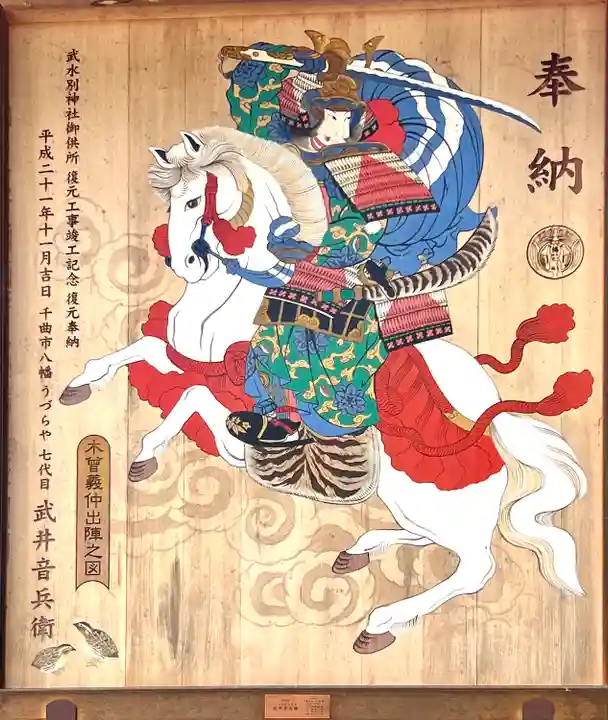 奉納
武水別神社御供所 復元工事竣工記念 復元奉納
平成二十一年十一月吉日 千曲市八幡 うづらや 七代目 武井音兵衛
木曾義仲出陣之図